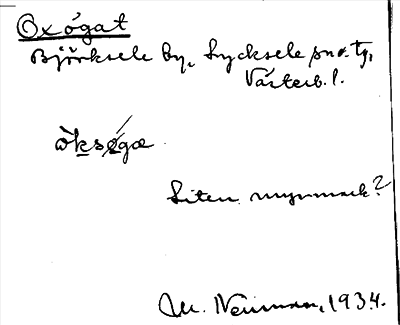 Oxögat
Björksele by, Lycksele sn o. tg,
Västerb. l.
Liten myrmark?
M. Neiman, 1934.